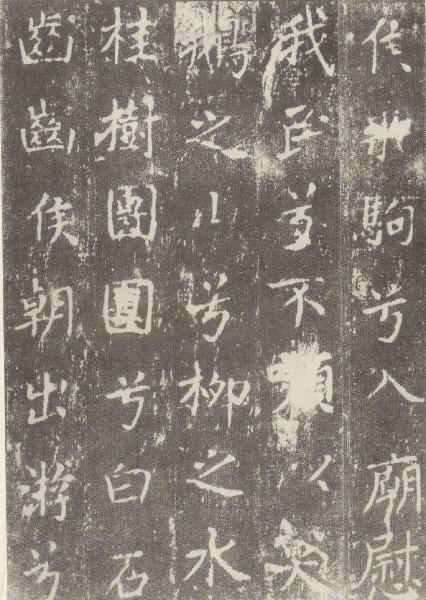 侯乘駒兮入廟慰
我民兮不嚬以笑
鵝之山兮柳之水
桂樹團團兮白石
齒齒侯朝出游兮